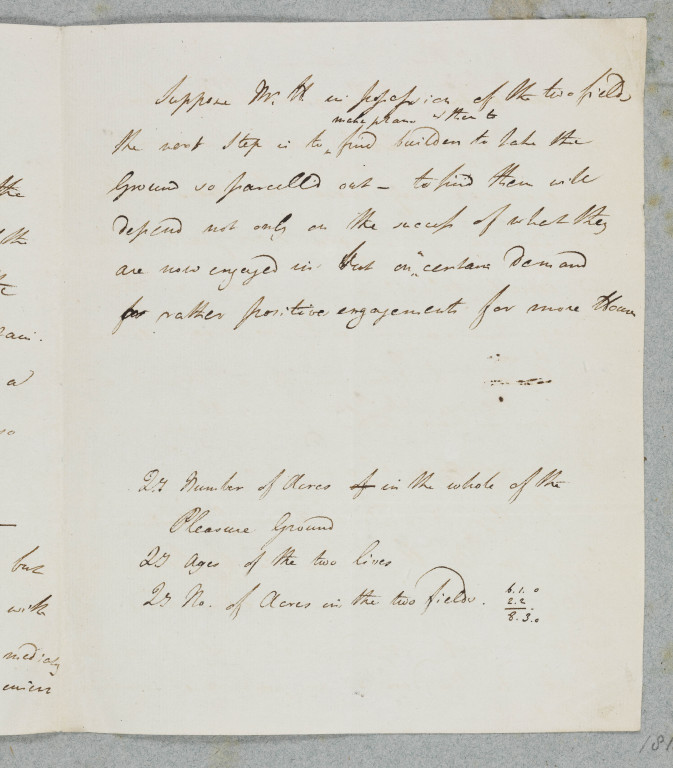 the
the
the
a
so
but
with
mediately
Suppose Mr. H in possession of the two fields
make plans & then to
the next Step is to ‸ find builders to take the
Ground so parcell'd out – to find them will
depend not only on the success of what they
are now engaged in but on certain Demand
for rather positive engagements for more Houses
Qy Number of Acres of in the whole of the
Pleasure Ground
Qy Ages of the two lives
Qy No. of Acres in the two fields.
6.1.0
2.2.
8.3.0
181